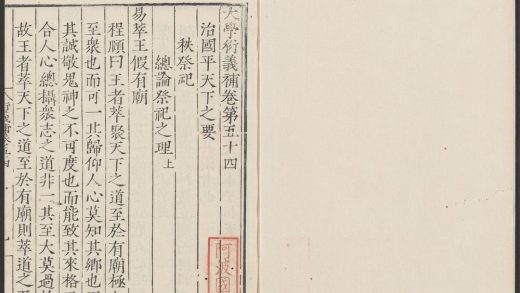 大學衍義補卷第五十四
治國平天下之要
秩祭祀
總論祭祀之理上
易萃王假有廟
程頤曰王者萃聚天下之道至於有廟極
至衆也而可一其歸仰人心莫知其鄉也
其誠敬鬼神之不可度也而能致其來格
合人心總攝衆志之道非一其至大莫過
故王者萃天下之道至於有廟則萃道之
阿波國